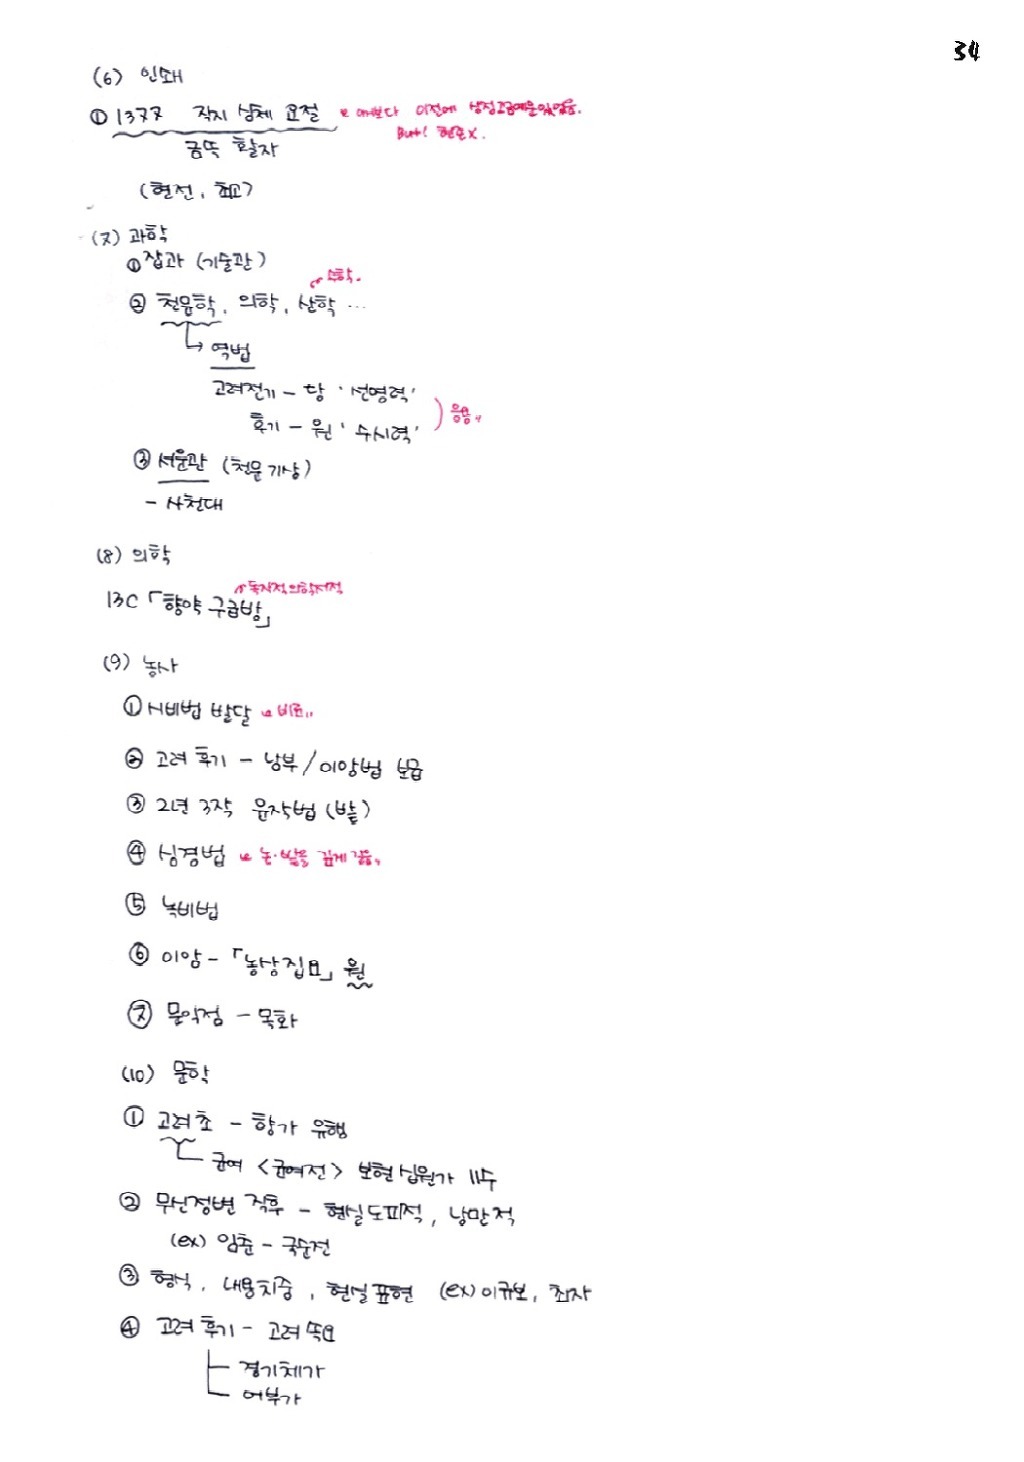 34
(6) 인쇄
① 1377 직지 심체 요절 ← 얘보다 이전에 상정고금예문있었음.
But! 현존X.
금속 활자
(현전, 최고)
(7) 과학
① 잡과 (기술관)
수학.
② 천문학, 의학, 산학 …
→ 역법
고려전기 - 당 '선명력'
후기 - 원 '수시력' ) 응용.
③ 서운관 (천문기상)
- 사천대
(8) 의학
독자적의학서적
13C 「향약 구급방」
(9) 농사
① 시비법 발달 ← 비료
② 고려 후기 - 남부/이앙법 보급
③ 2년 3작 윤작법 (밭)
④ 심경법 ← 논·밭을 깊게 갈음
⑤ 녹비법
⑥ 이암 - 「농상집요」 원
⑦ 문익점 - 목화
(10) 문학
① 고려 초 - 향가 유행
균여 <균여전> 보현십원가 11수
② 무신정변 직후 - 현실도피적, 낭만적
(ex) 임춘 - 국순전
③ 형식, 내용치중, 현실표현 (ex) 이규보, 최자
④ 고려 후기 - 고려 속요
경기체가
어부가